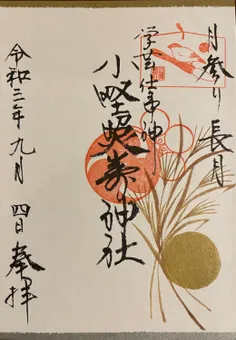 月参り 長月
学芸仕事神
小野照崎神社
令和三年九月四日奉拝